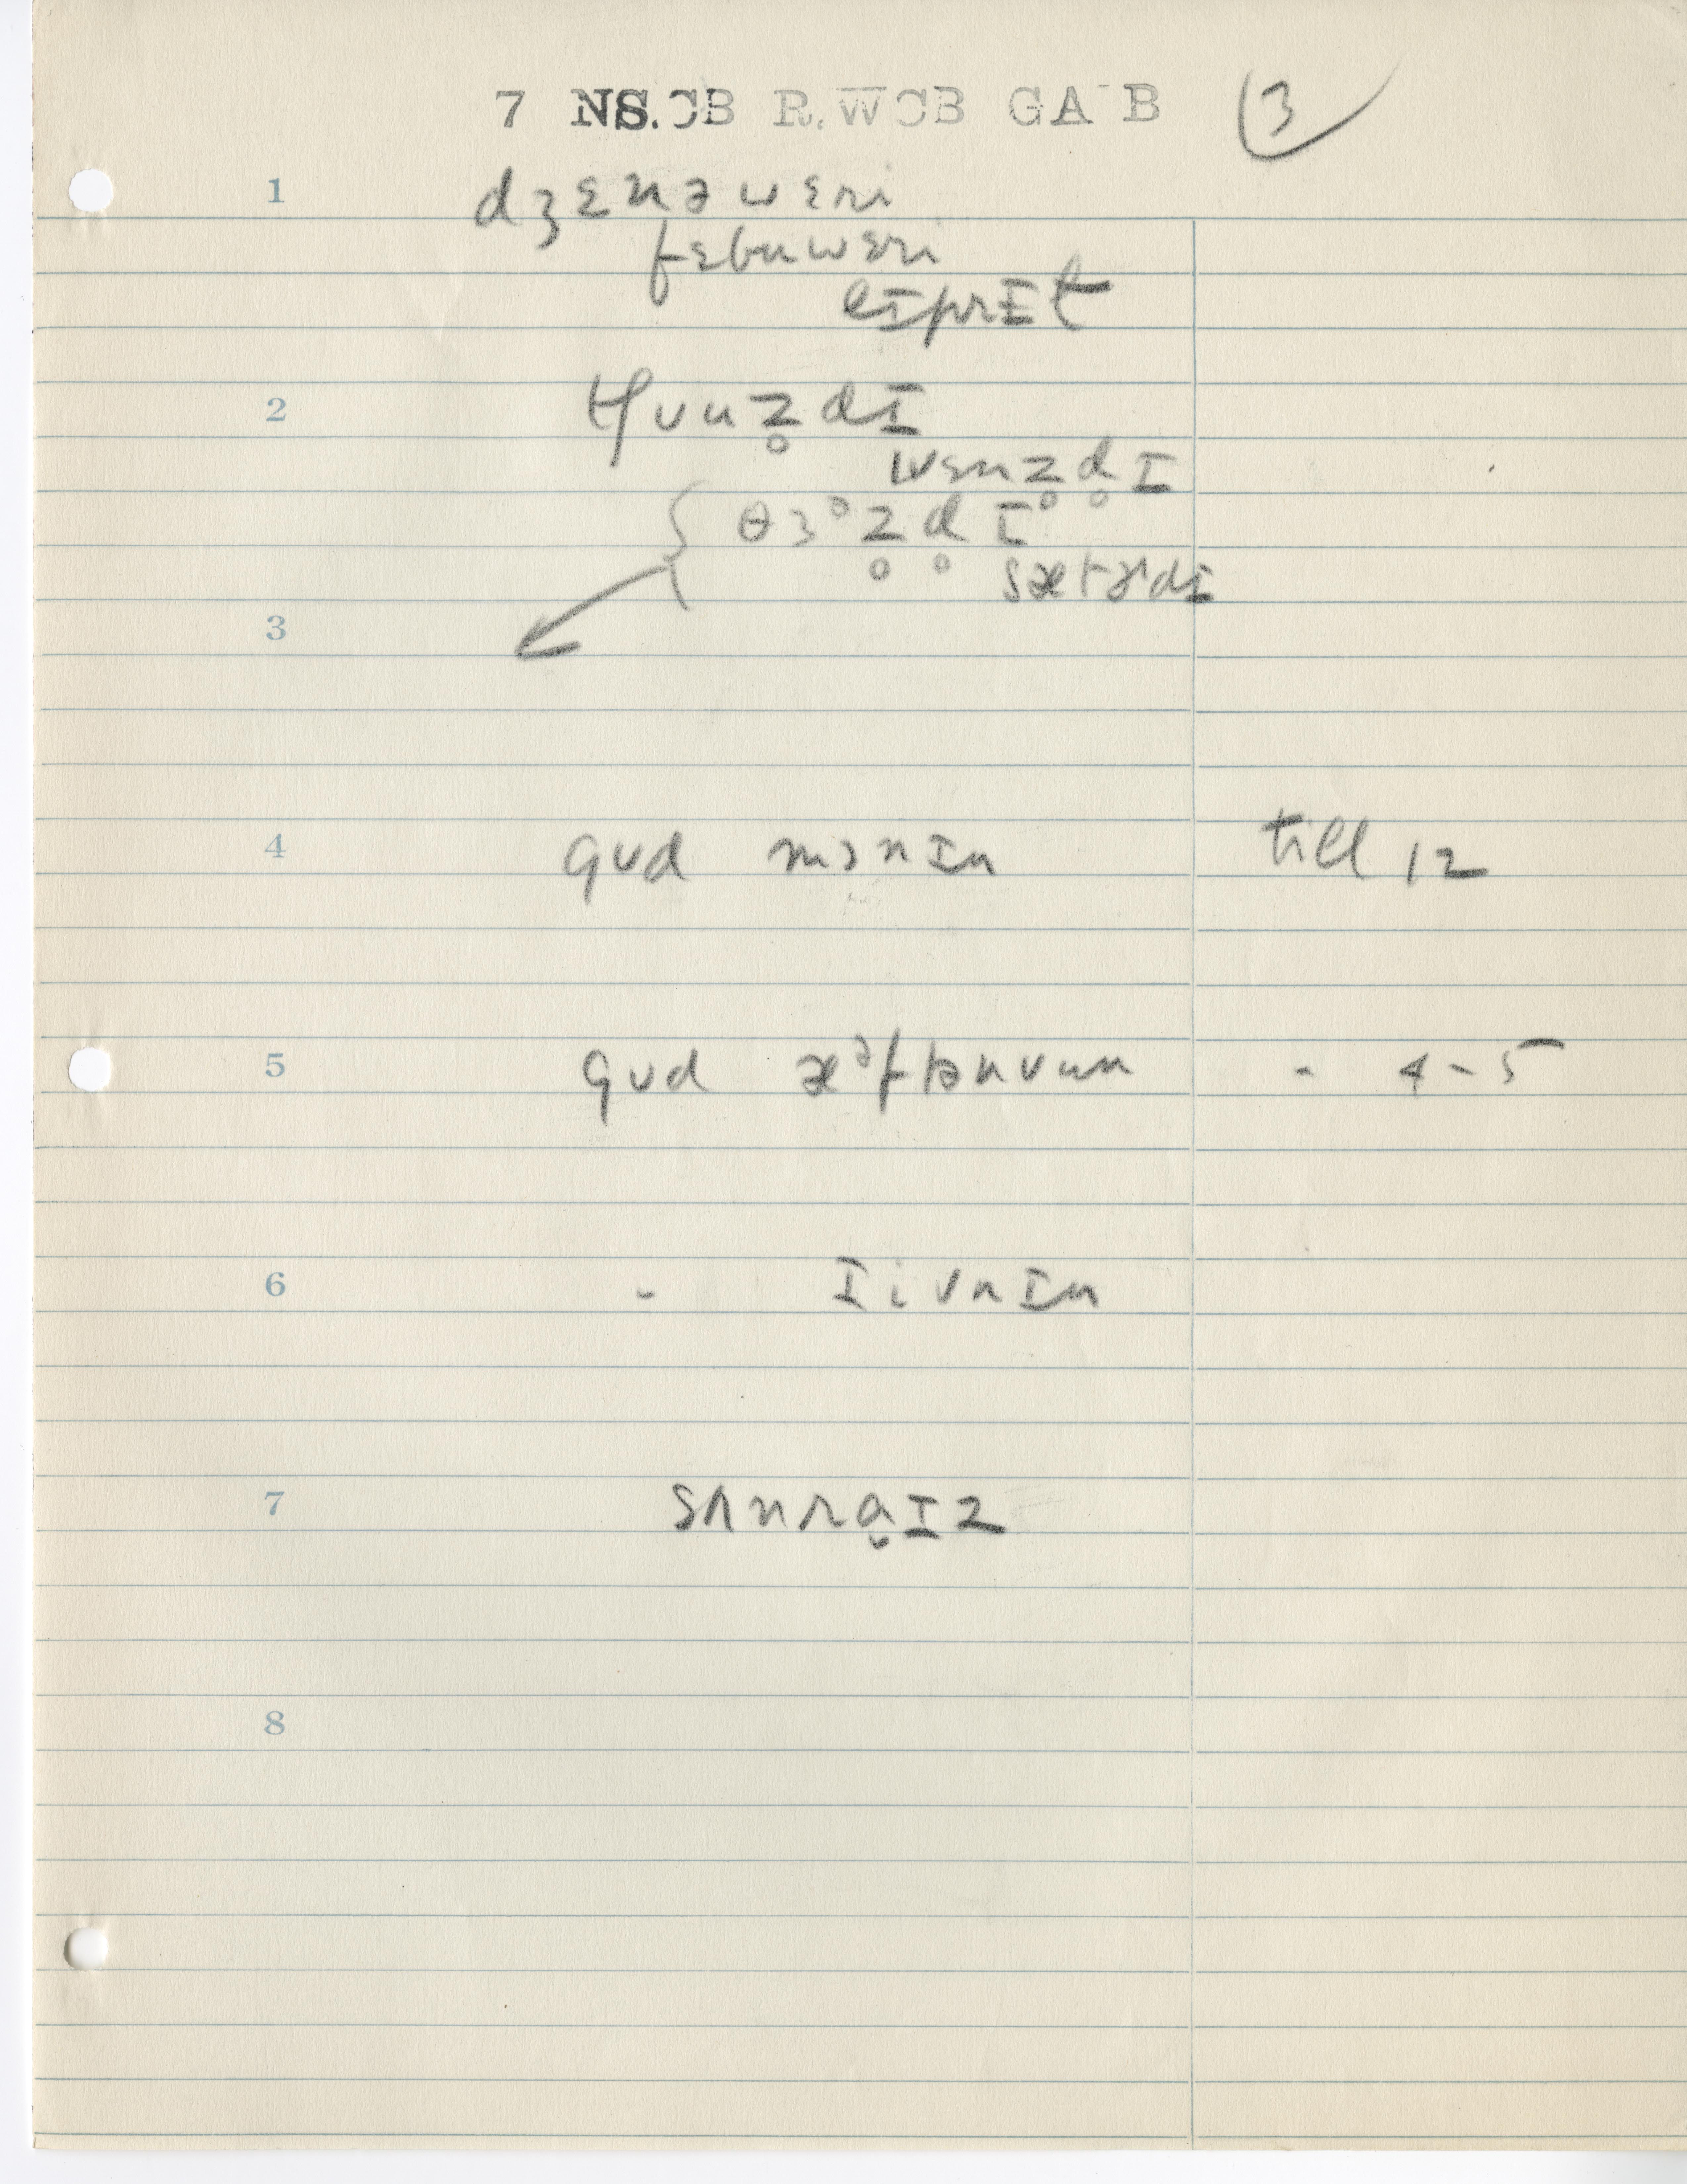 7 NS.CB R.WCB GA B 3
1 dʒɛnəwɛri
fɛbuwɛri
eɪprɪɫ
2 tʃuuz̥dɪ
wɛnz̥d̥ɪ
θɜᵊz̥d̥ɪ
sætɚdɪ
3
4 gud mɔnɪn till 12
5 gud æᵊftənuun " 4-5
6 " ɪivnɪn
7 sʌnraɪz
8